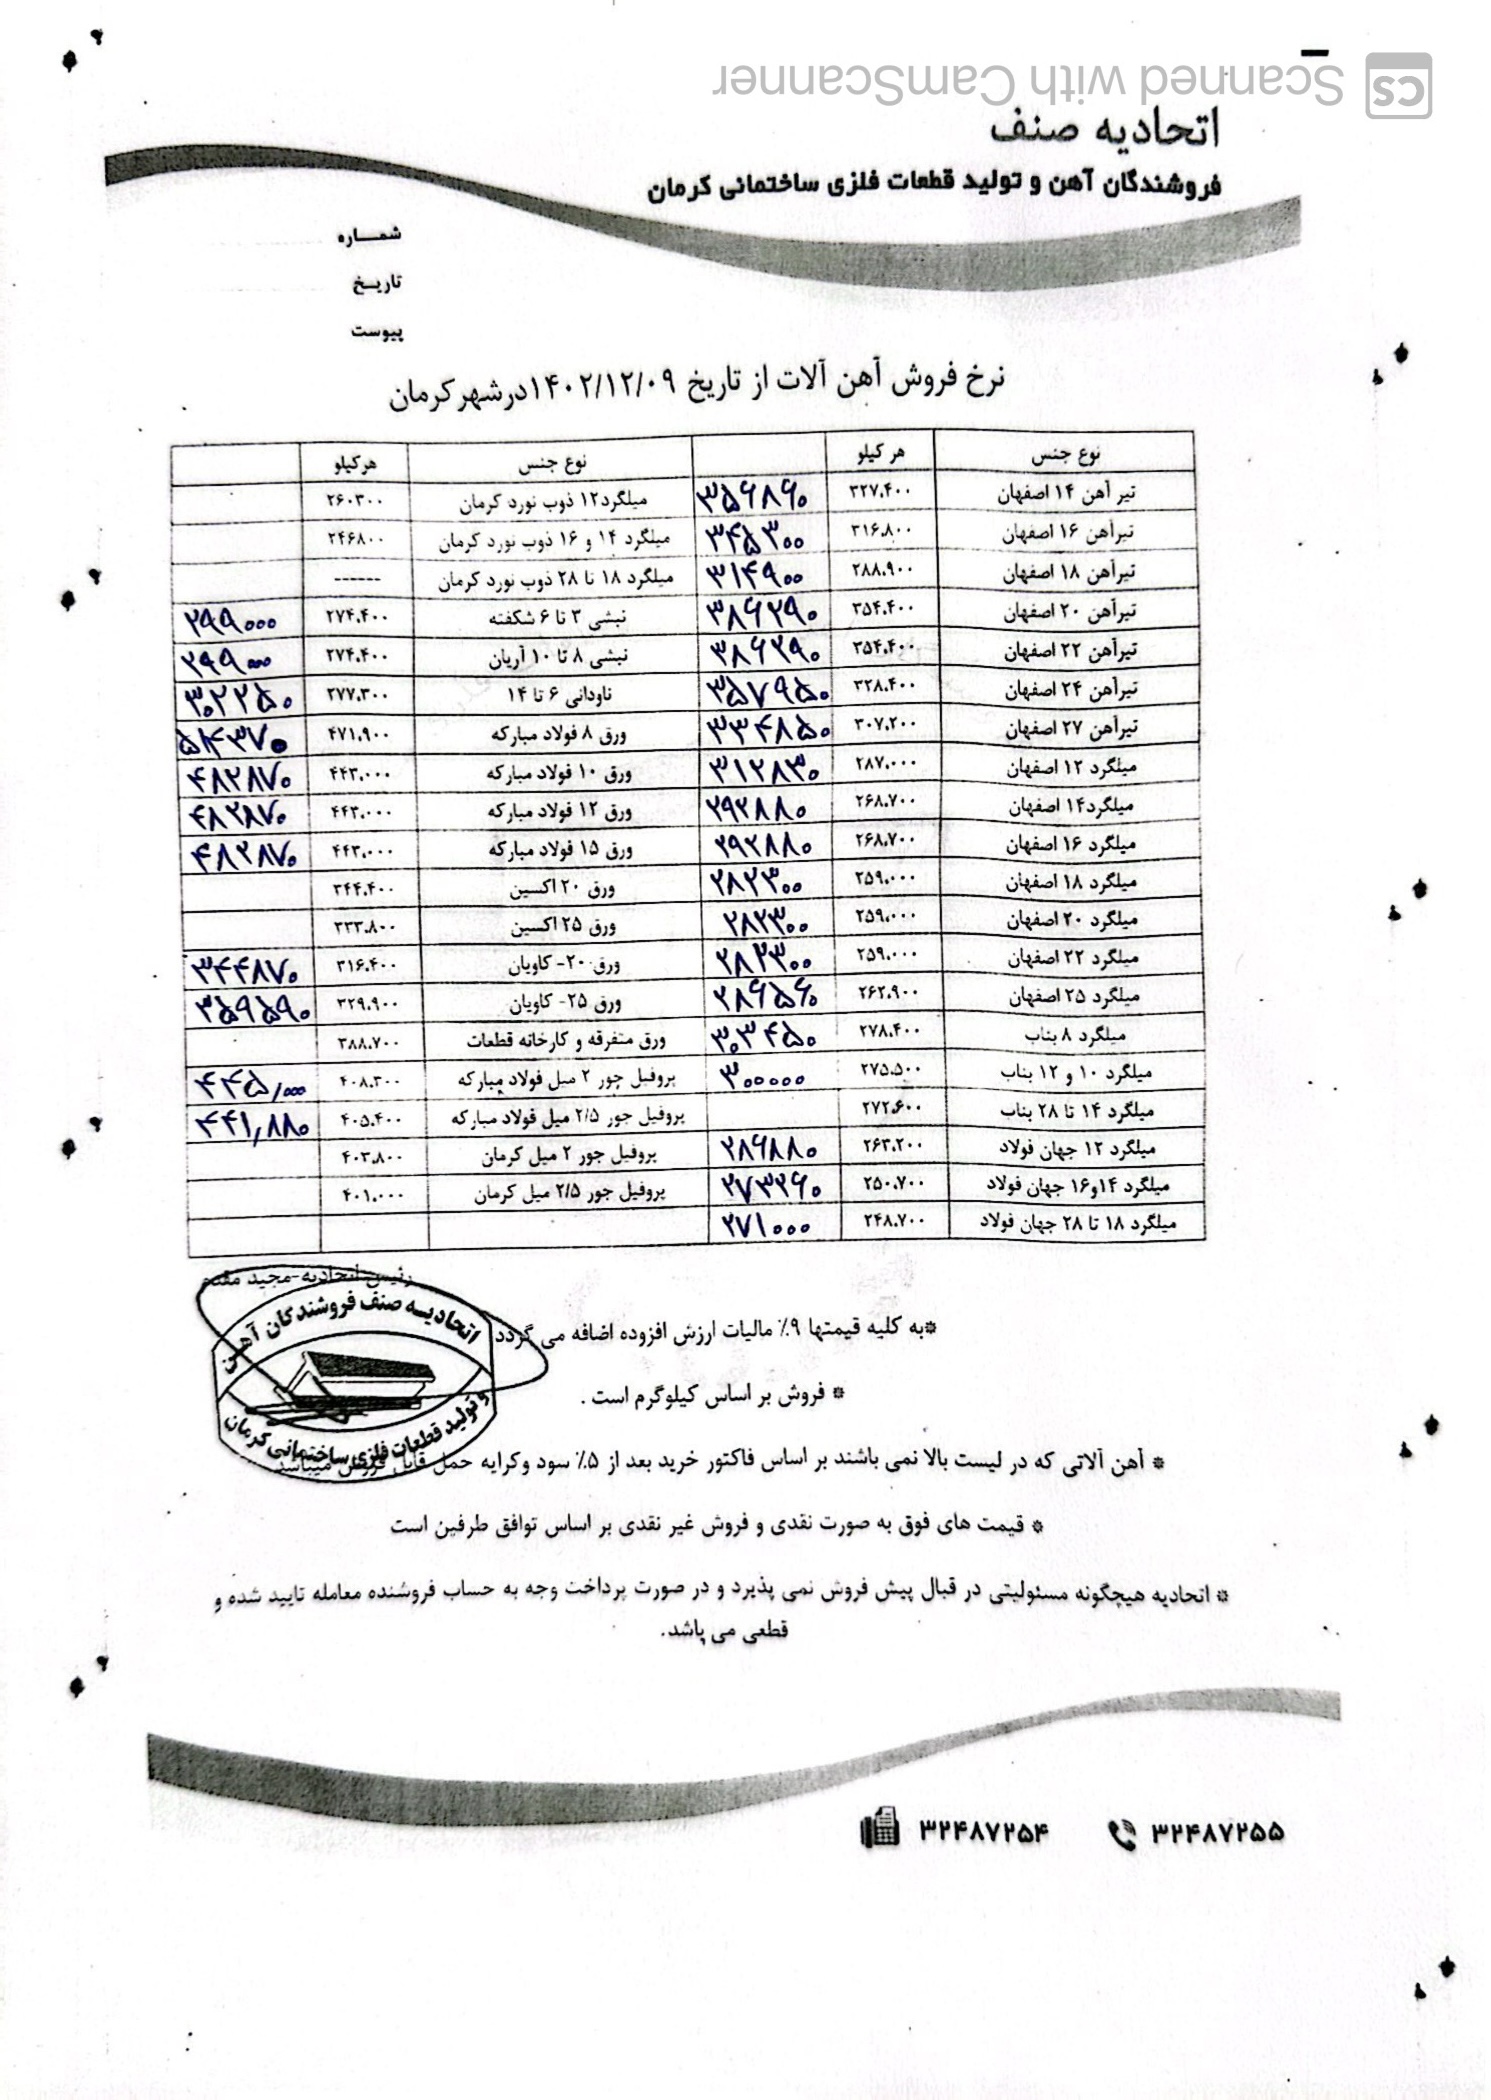 Scanned with CamScanner
اتحادیه صنف
فروشندگان آهن و تولید قطعات فلزی ساختمانی کرمان
شمـــاره
تاریـخ
پیوست
نرخ فروش آهن آلات از تاریخ ۱۴۰۲/۱۲/۰۹درشهرکرمان
نوع جنس هر کیلو نوع جنس هرکیلو
تیر آهن ۱۴ اصفهان ۳۲۷.۴۰۰ ۳۵۶۸۶۰ میلگرد۱۲ ذوب نورد کرمان ۲۶۰۳۰۰
تیرآهن ۱۶ اصفهان ۳۱۶.۸۰۰ ۳۴۵۳۰۰ میلگرد ۱۴ و ۱۶ ذوب نورد کرمان ۲۴۶۸۰۰
تیرآهن ۱۸ اصفهان ۲۸۸.۹۰۰ ۳۱۴۹۰۰ میلگرد ۱۸ تا ۲۸ ذوب نورد کرمان ------
تیرآهن ۲۰ اصفهان ۳۵۴.۴۰۰ ۳۸۶۲۹۰ نبشی ۳ تا ۶ شکفته ۲۷۴.۴۰۰ ۲۹۹۰۰۰
تیرآهن ۲۲ اصفهان ۳۵۴.۴۰۰ ۳۸۶۲۹۰ نبشی ۸ تا ۱۰ آریان ۲۷۴.۴۰۰ ۲۹۹۰۰۰
تیرآهن ۲۴ اصفهان ۳۲۸.۴۰۰ ۳۵۷۹۵۰ ناودانی ۶ تا ۱۴ ۲۷۷.۳۰۰ ۳۰۲۲۵۰
تیرآهن ۲۷ اصفهان ۳۰۷.۲۰۰ ۳۳۴۸۵۰ ورق ۸ فولاد مبارکه ۴۷۱.۹۰۰ ۵۱۴۳۷۰
میلگرد ۱۲ اصفهان ۲۸۷.۰۰۰ ۳۱۲۸۳۰ ورق ۱۰ فولاد مبارکه ۴۴۳.۰۰۰ ۴۸۲۸۷۰
میلگرد۱۴ اصفهان ۲۶۸.۷۰۰ ۲۹۲۸۸۰ ورق ۱۲ فولاد مبارکه ۴۴۳.۰۰۰ ۴۸۲۸۷۰
میلگرد ۱۶ اصفهان ۲۶۸.۷۰۰ ۲۹۲۸۸۰ ورق ۱۵ فولاد مبارکه ۴۴۳.۰۰۰ ۴۸۲۸۷۰
میلگرد ۱۸ اصفهان ۲۵۹.۰۰۰ ۲۸۲۳۰۰ ورق ۲۰ اکسین ۳۴۴.۴۰۰
میلگرد ۲۰ اصفهان ۲۵۹.۰۰۰ ۲۸۲۳۰۰ ورق ۲۵ اکسین ۳۳۳.۸۰۰
میلگرد ۲۲ اصفهان ۲۵۹.۰۰۰ ۲۸۲۳۰۰ ورق ۲۰- کاویان ۳۱۶.۴۰۰ ۳۴۴۸۷۰
میلگرد ۲۵ اصفهان ۲۶۲.۹۰۰ ۲۸۶۵۶۰ ورق ۲۵- کاویان ۳۲۹.۹۰۰ ۳۵۹۵۹۰
میلگرد ۸ بناب ۲۷۸.۴۰۰ ۳۰۳۴۵۰ ورق متفرقه و کارخانه قطعات ۳۸۸.۷۰۰
میلگرد ۱۰ و ۱۲ بناب ۲۷۵.۵۰۰ ۳۰۰۰۰۰ پروفیل جور ۲ میل فولاد مبارکه ۴۰۸.۳۰۰ ۴۴۵,۰۰۰
میلگرد ۱۴ تا ۲۸ بناب ۲۷۲.۶۰۰ پروفیل جور ۲/۵ میل فولاد مبارکه ۴۰۵.۴۰۰ ۴۴۱,۸۸۰
میلگرد ۱۲ جهان فولاد ۲۶۳.۲۰۰ ۲۸۶۸۸۰ پروفیل جور ۲ میل کرمان ۴۰۳.۸۰۰
میلگرد ۱۴و۱۶ جهان فولاد ۲۵۰.۷۰۰ ۲۷۳۲۶۰ پروفیل جور ۲/۵ میل کرمان ۴۰۱.۰۰۰
میلگرد ۱۸ تا ۲۸ جهان فولاد ۲۴۸.۷۰۰ ۲۷۱۰۰۰
رئیس اتحادیه-مجید
اتحادیـه صنف فروشندگان آهـن
و تولید قطعات فلزی ساختمانی کرمان
*به کلیه قیمتها ۹٪ مالیات ارزش افزوده اضافه می گردد
* فروش بر اساس کیلوگرم است .
* آهن آلاتی که در لیست بالا نمی باشند بر اساس فاکتور خرید بعد از ۵٪ سود وکرایه حمل قابل فروش میباشد
* قیمت های فوق به صورت نقدی و فروش غیر نقدی بر اساس توافق طرفین است
* اتحادیه هیچگونه مسئولیتی در قبال پیش فروش نمی پذیرد و در صورت پرداخت وجه به حساب فروشنده معامله تایید شده و
قطعی می باشد.
۳۲۴۸۷۲۵۵ ۳۲۴۸۷۲۵۴